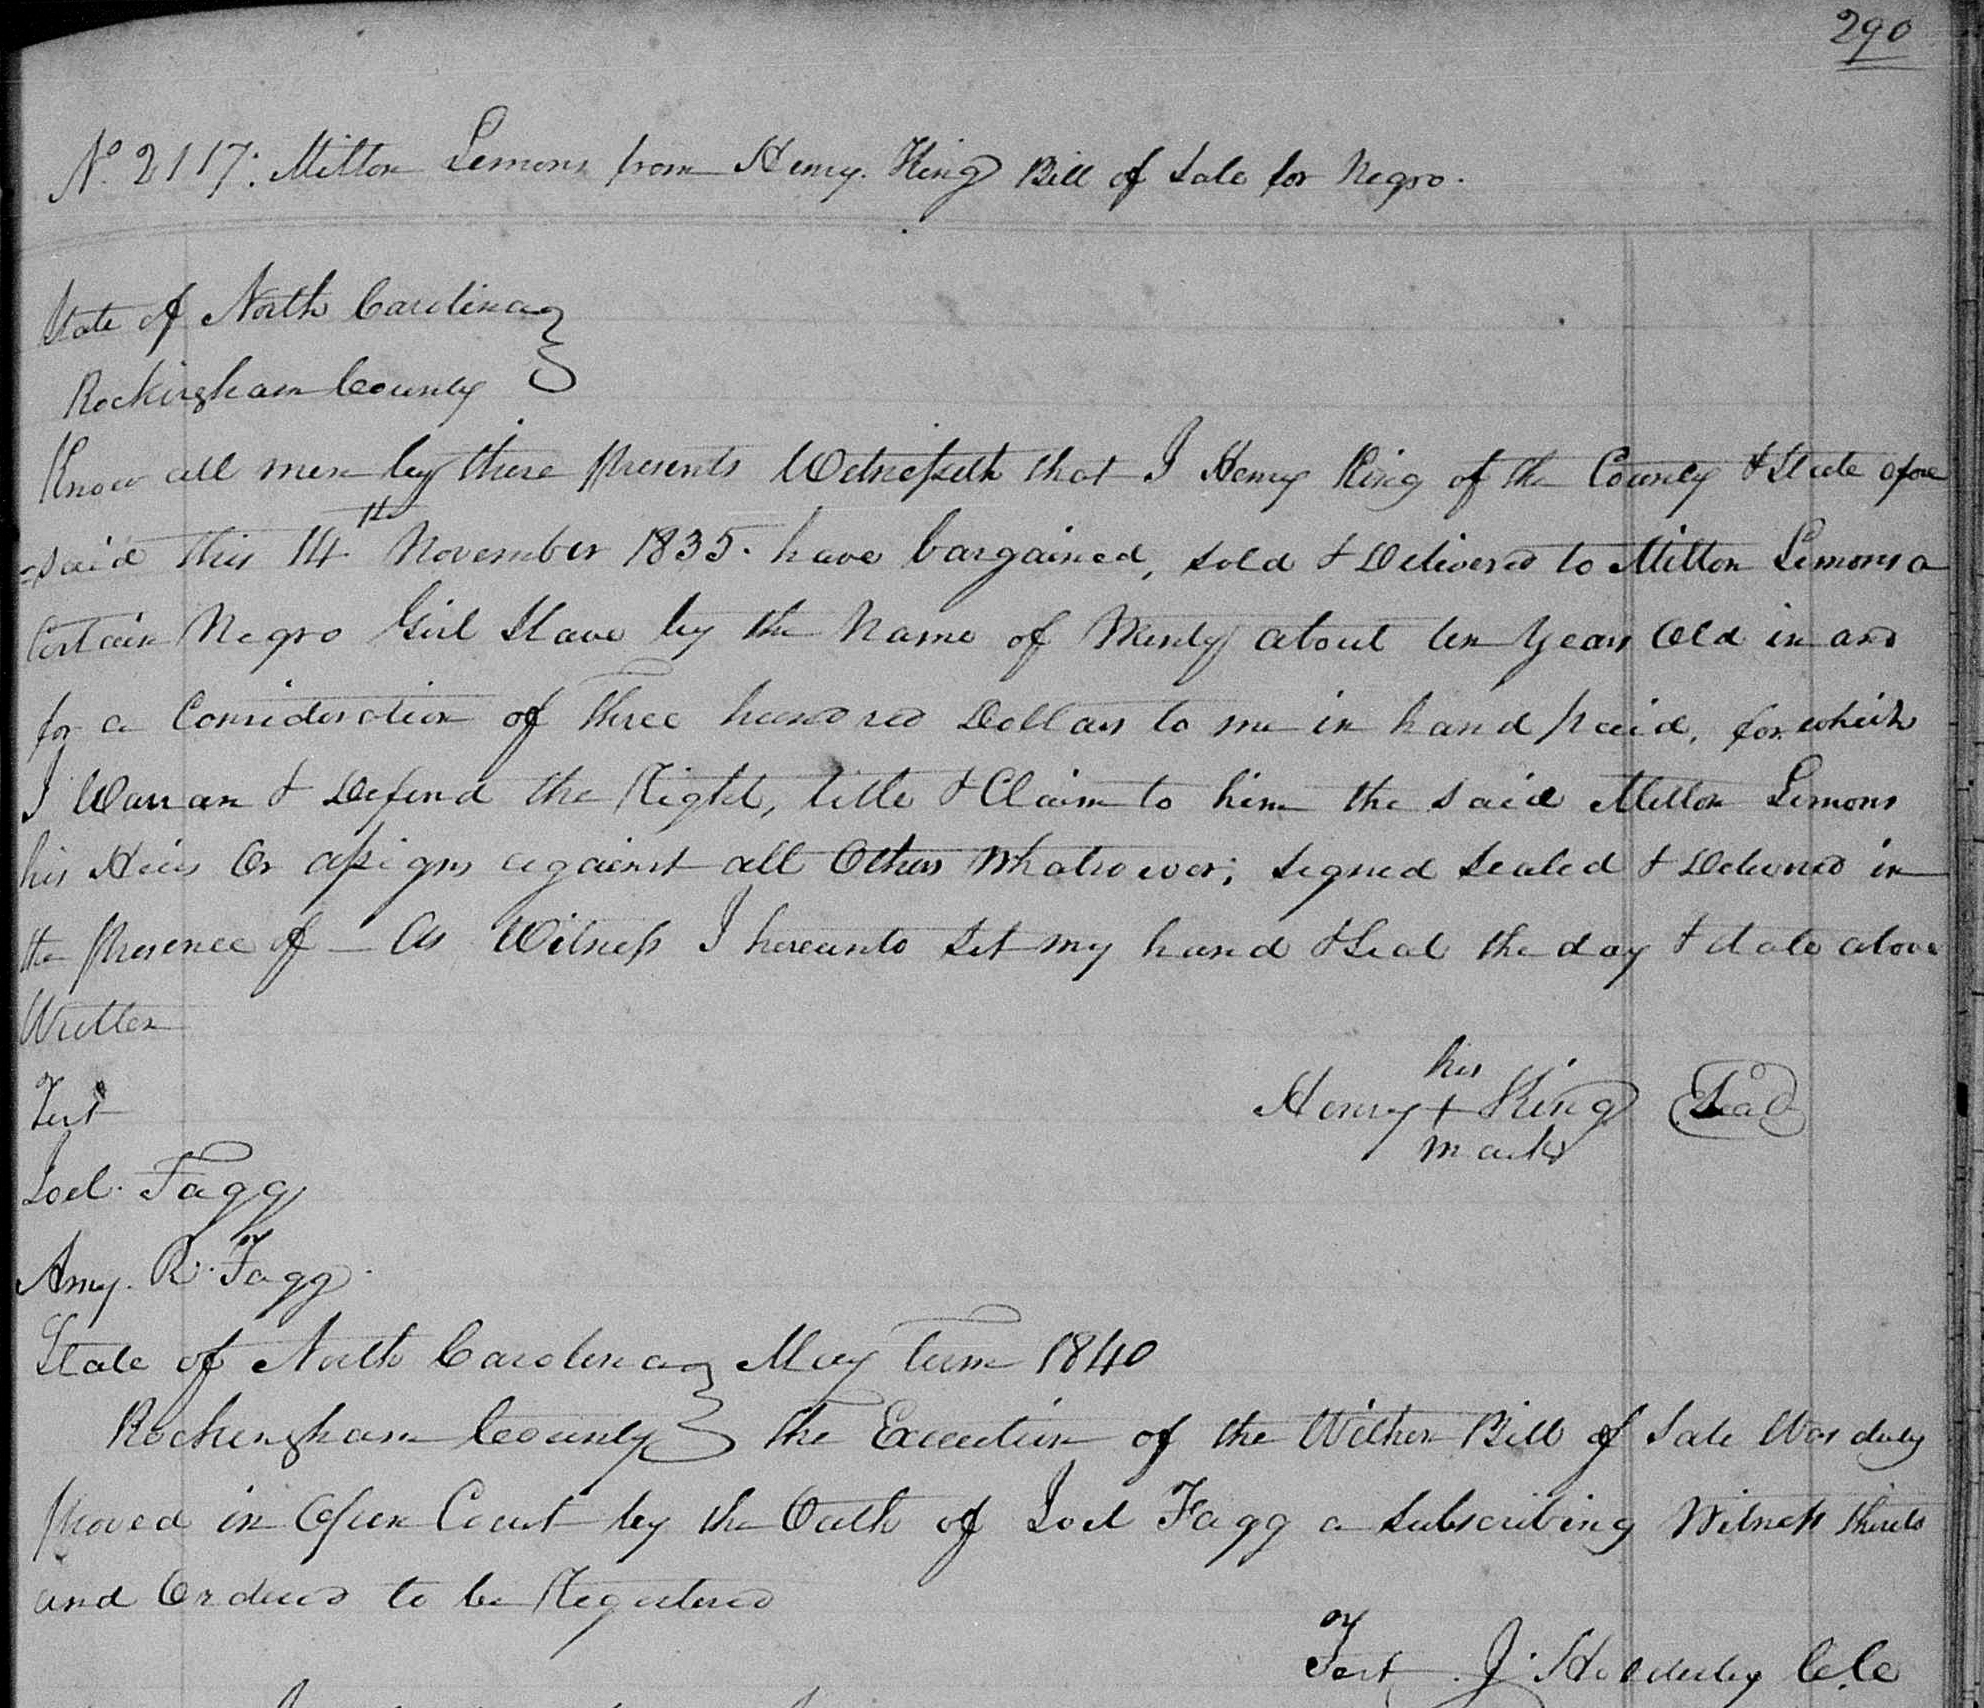 290
No. 2117. Milton Lemons from Henry King Bill of Sale for Negro.
State of North Carolina
Rockingham County
Know all men by these presents Witnesseth that I Henry King of the County & State afore
=said this 14th November 1835. have bargained, sold & Delivered to Milton Lemons a
Certain Negro Girl Slave by the Name of Mindy about ten Years Old in and
for a Consideration of three hundred Dollars to me in hand paid, for which
I Warran & Defend the Right, title & Claim to him the said Milton Lemons
his Heirs Or assigns against all Others Whatsoever; Signed Sealed & Delivered in
the presence of - As Witness I hereunto Set my hand & Seal the day & date above
Written
his
Test
Henry + King Seal
mark
Joel Fagg
Amy. R. Fagg.
State of North Carolina May Term 1840
Rockingham County The Execution of the Within Bill of Sale Was duly
proved in Open Court by the Oath of Joel Fagg a Subscribing Witness thereto
and Ordered to be Registered
Test J. Holderby C.C.